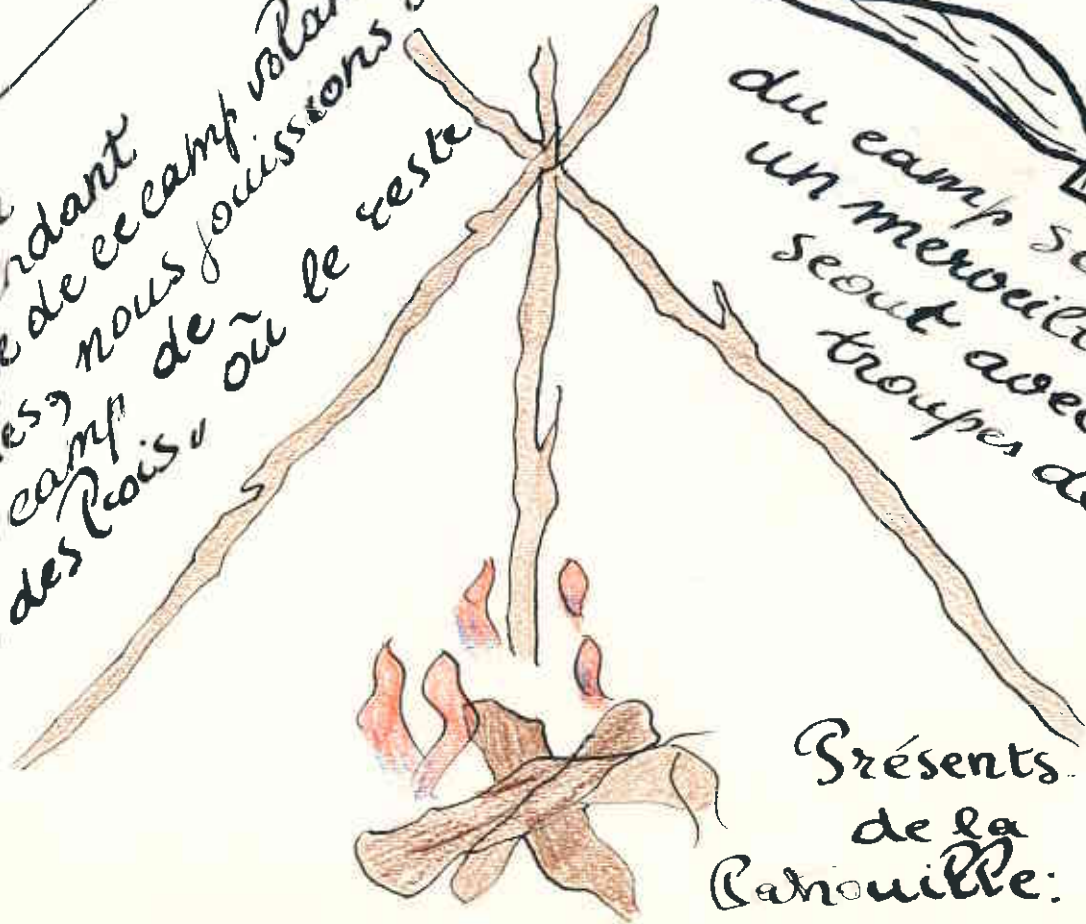 rdant
de ce camp volan
es, nous jouissons
camp de
des Rois, où le reste
du camp
un merveill
scout avec
troupes de
Présents
de la
Patrouille: